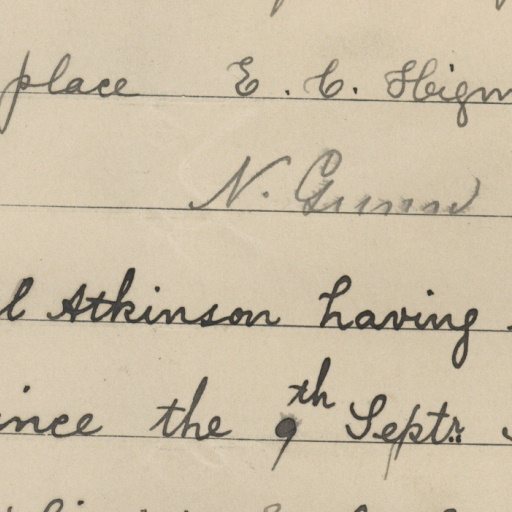 place E. C. Higm
N. Gunn
l Atkinson having
ince the 9th Septr.